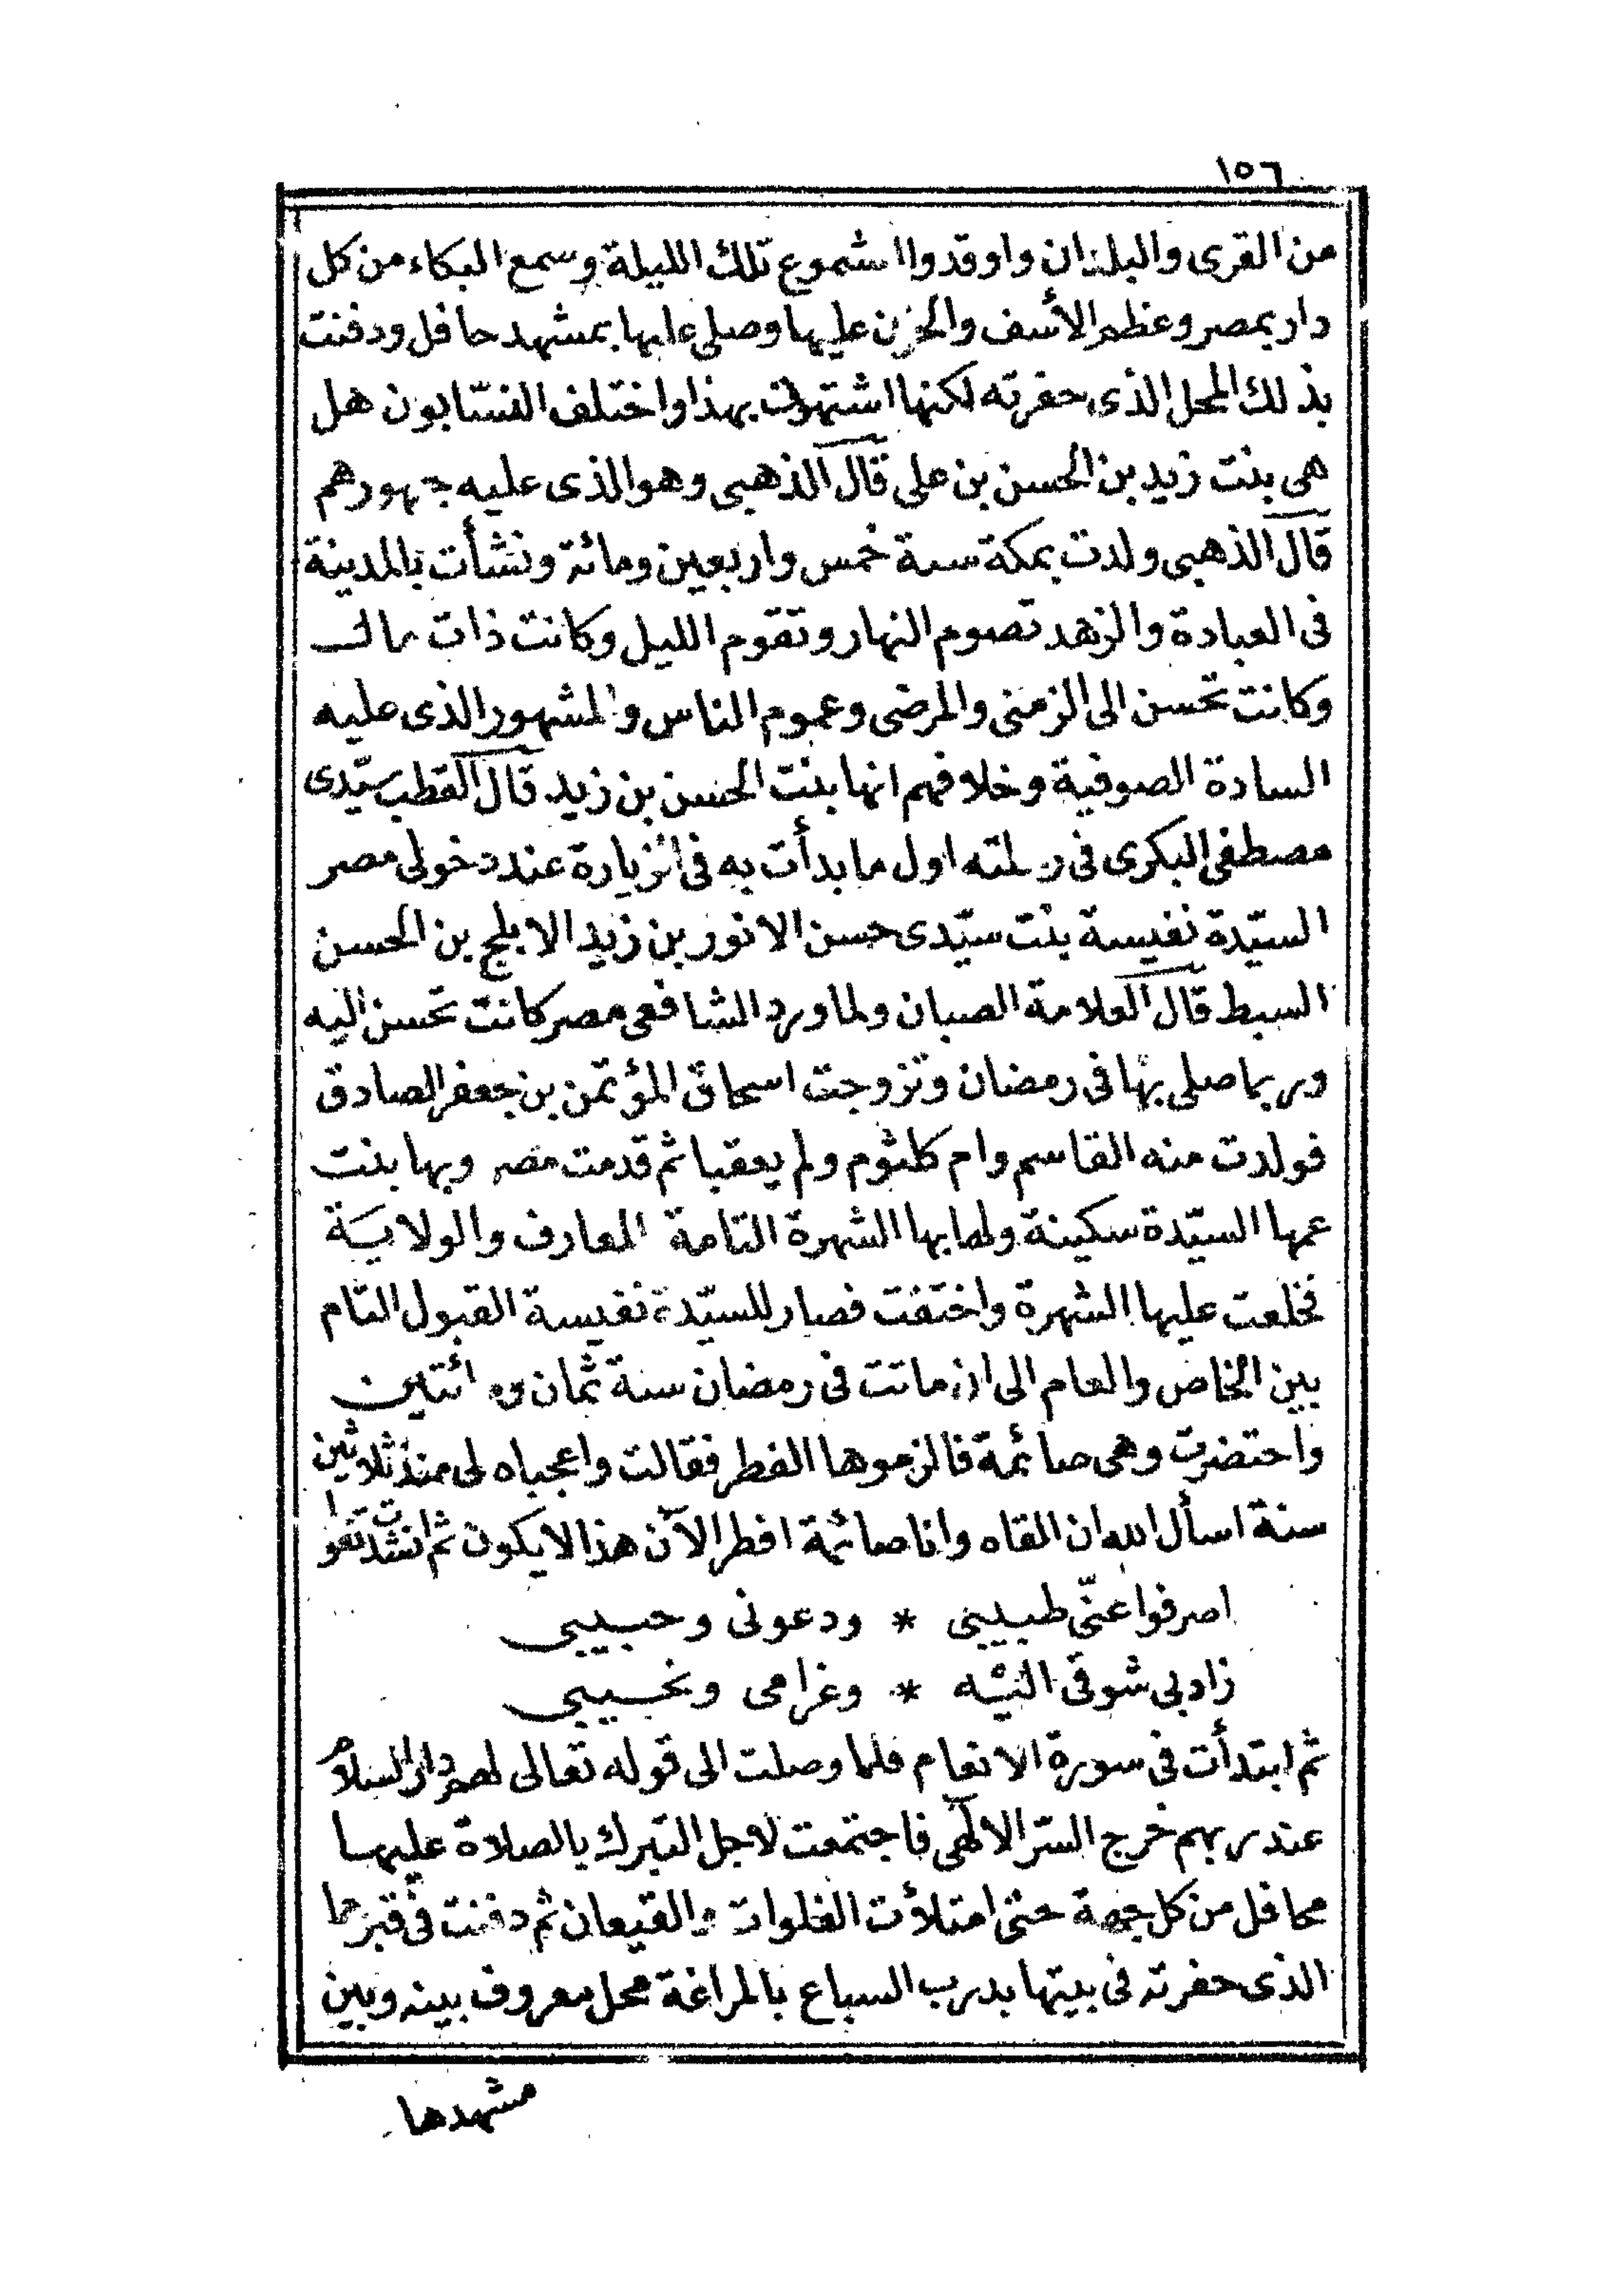 ١٥٦
من القرى والبلدان واوقدوا الشموع تلك الليلة وسمع البكاء من كل
دار بمصر وعظم الأسف والحزن عليها وصلى عليها بمشهد حافل ودفنت
بذلك المحل الذى حفرته لكنها اشتهرت بهذا واختلف النسّابون هل
هى بنت زيد بن الحسن بن على قال الذهبى وهو الذى عليه جمهورهم
قال الذهبى ولدت بمكة سنة خمس واربعين ومائة ونشأت بالمدينة
فى العبادة والزهد تصوم النهار وتقوم الليل وكانت ذات مال
وكانت تحسن الى الزمنى والمرضى وعموم الناس والمشهور الذى عليه
السادة الصوفية وخلافهم انها بنت الحسن بن زيد قال القطب سيّدى
مصطفى البكرى فى رحلته اول ما بدأت به فى الزيارة عند دخولى مصر
السيّدة نفيسة بنت سيّدى حسن الانور بن زيد الابلج بن الحسن
السبط قال العلامة الصبان ولما ورد الشافعى مصر كانت تحسن اليه
وربما صلى بها فى رمضان وتزوجت اسحاق المؤتمن بن جعفر الصادق
فولدت منه القاسم وام كلثوم ولم يعقبا ثم قدمت مصر وبها بنت
عمها السيّدة سكينة ولها بها الشهرة التامة المعارف والولاية
فخلعت عليها الشهرة واختفت فصار للسيّدة نفيسة القبول التام
بين الخاص والعام الى ان ماتت فى رمضان سنة ثمان ومائتين
واحتضرت وهى صائمة فالزموها الفطر فقالت واعجباه لى منذ ثلاثين
سنة اسأل الله ان القاه وانا صائمة افطر الآن هذا لا يكون ثم انشدت تقول
اصرفوا عنّى طبيبى * ودعونى وحبيبى
زاد بى شوقى اليه * وغرامى ونحيبى
ثم ابتدأت فى سورة الانعام فلما وصلت الى قوله تعالى لهم دار السلام
عند ربهم خرج السرّ الالٰهى فاجتمعت لاجل التبرك بالصلاة عليها
محافل من كل جهة حتى امتلأت الفلوات والقيعان ثم دفنت فى قبرها
الذى حفرته فى بيتها بدرب السباع بالمراغة محل معروف بينه وبين
مشهدها